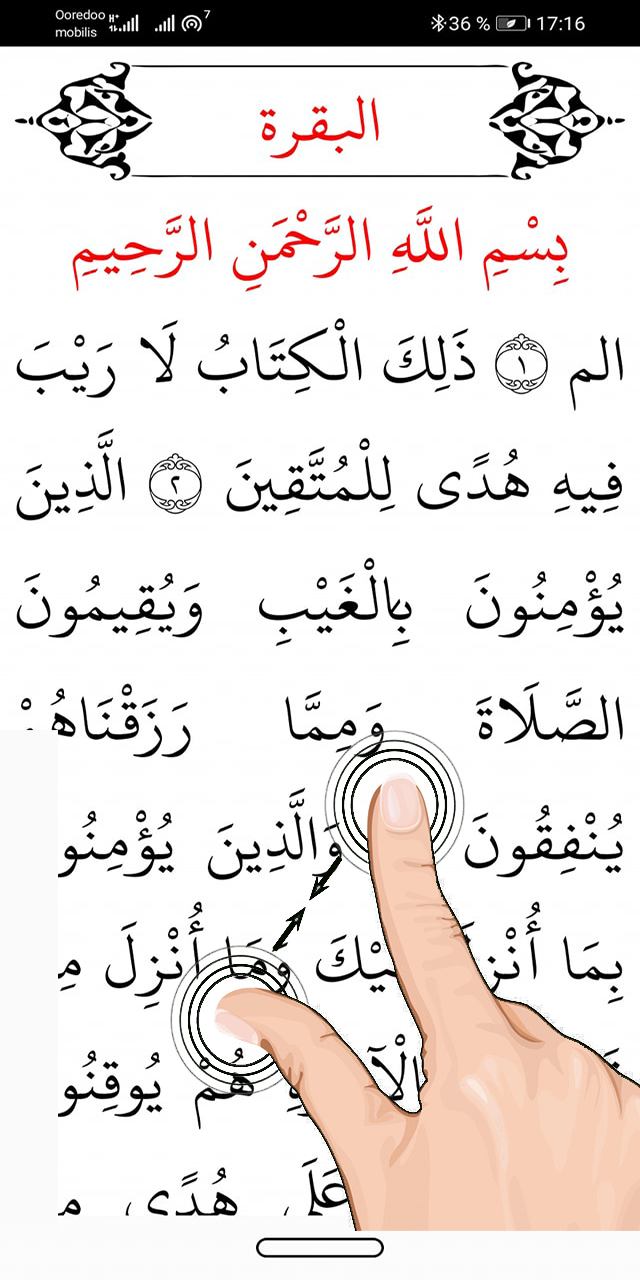 Ooredoo H+ 7 36 % 17:16
mobilis
البقرة
بِسْمِ اللَّهِ الرَّحْمَنِ الرَّحِيمِ
الم ١ ذَلِكَ الْكِتَابُ لَا رَيْبَ
فِيهِ هُدًى لِلْمُتَّقِينَ ٢ الَّذِينَ
يُؤْمِنُونَ بِالْغَيْبِ وَيُقِيمُونَ
الصَّلَاةَ وَمِمَّا رَزَقْنَاهُمْ
يُنْفِقُونَ وَالَّذِينَ يُؤْمِنُو
بِمَا أُنْزِلَ وَمَا أُنْزِلَ مِ
هُمْ يُوقِنُو
عَلَى هُدًى مِ